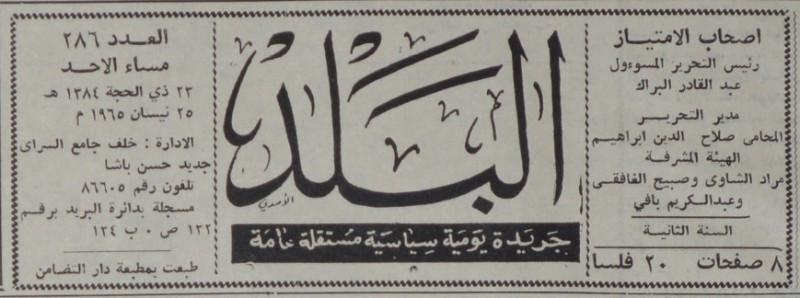 اصحاب الامتياز
رئيس التحرير المسوءول
عبد القادر البراك
مدير التحرير
المحامى صلاح الدين ابراهيم
الهيئة المشرفة
مراد الشاوى وصبيح الغافقى
وعبدالكريم بافي
السنة الثانية
٨ صفحات ٢٠ فلسا
البلد
الأسدي
جريدة يومية سياسية مستقلة عامة
العدد ٢٨٦
مساء الاحد
٢٣ ذي الحجة ١٣٨٤ هـ
٢٥ نيسان ١٩٦٥ م
الادارة : خلف جامع السراى
جديد حسن باشا
تلفون رقم ٨٦٦٠٥
مسجلة بدائرة البريد برقم
١٢٢ ص ٠ ب ١٢٤
طبعت بمطبعة دار التضامن